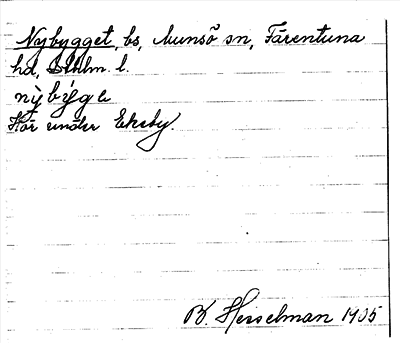 Nybygget, bs, Munsö sn, Färentuna
hd, Sthlm. l.
nỳbýgge
Hör under Ekeby.
B. Hesselman 1905